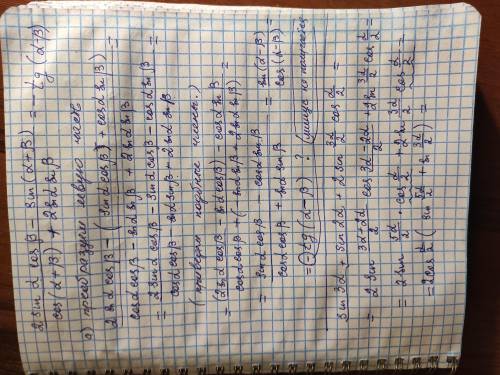 2 sin α cos β − sin (α+β) / cos (α+β) + 2 sin α sin β = − tg (α−β)
а) преобразуем левую часть
2 sin α cos β − (sin α cos β + cos α sin β) / cos α cos β − sin α sin β + 2 sin α sin β =
= 2 sin α cos β − sin α cos β − cos α sin β / cos α cos β − sin α sin β + 2 sin α sin β =
(приводим подобные членты.)
= (2 sin α cos β − sin α cos β) − cos α sin β / cos α cos β + (− sin α sin β + 2 sin α sin β) =
= sin α cos β − cos α sin β / cos α cos β + sin α sin β = sin (α−β) / cos (α−β) =
= − tg (α−β) ?
sin 3α + sin 2α + 2 sin 3α/2 cos α/2 =
= 2 sin 3α+2α / 2 cos 3α−2α / 2 + 2 sin 3α/2 cos α/2 =
= 2 sin 5α/2 · cos α/2 + 2 sin 3α/2 cos α/2 =
= 2 cos α/2 ( sin 5α/2 + sin 3α/2 ) =